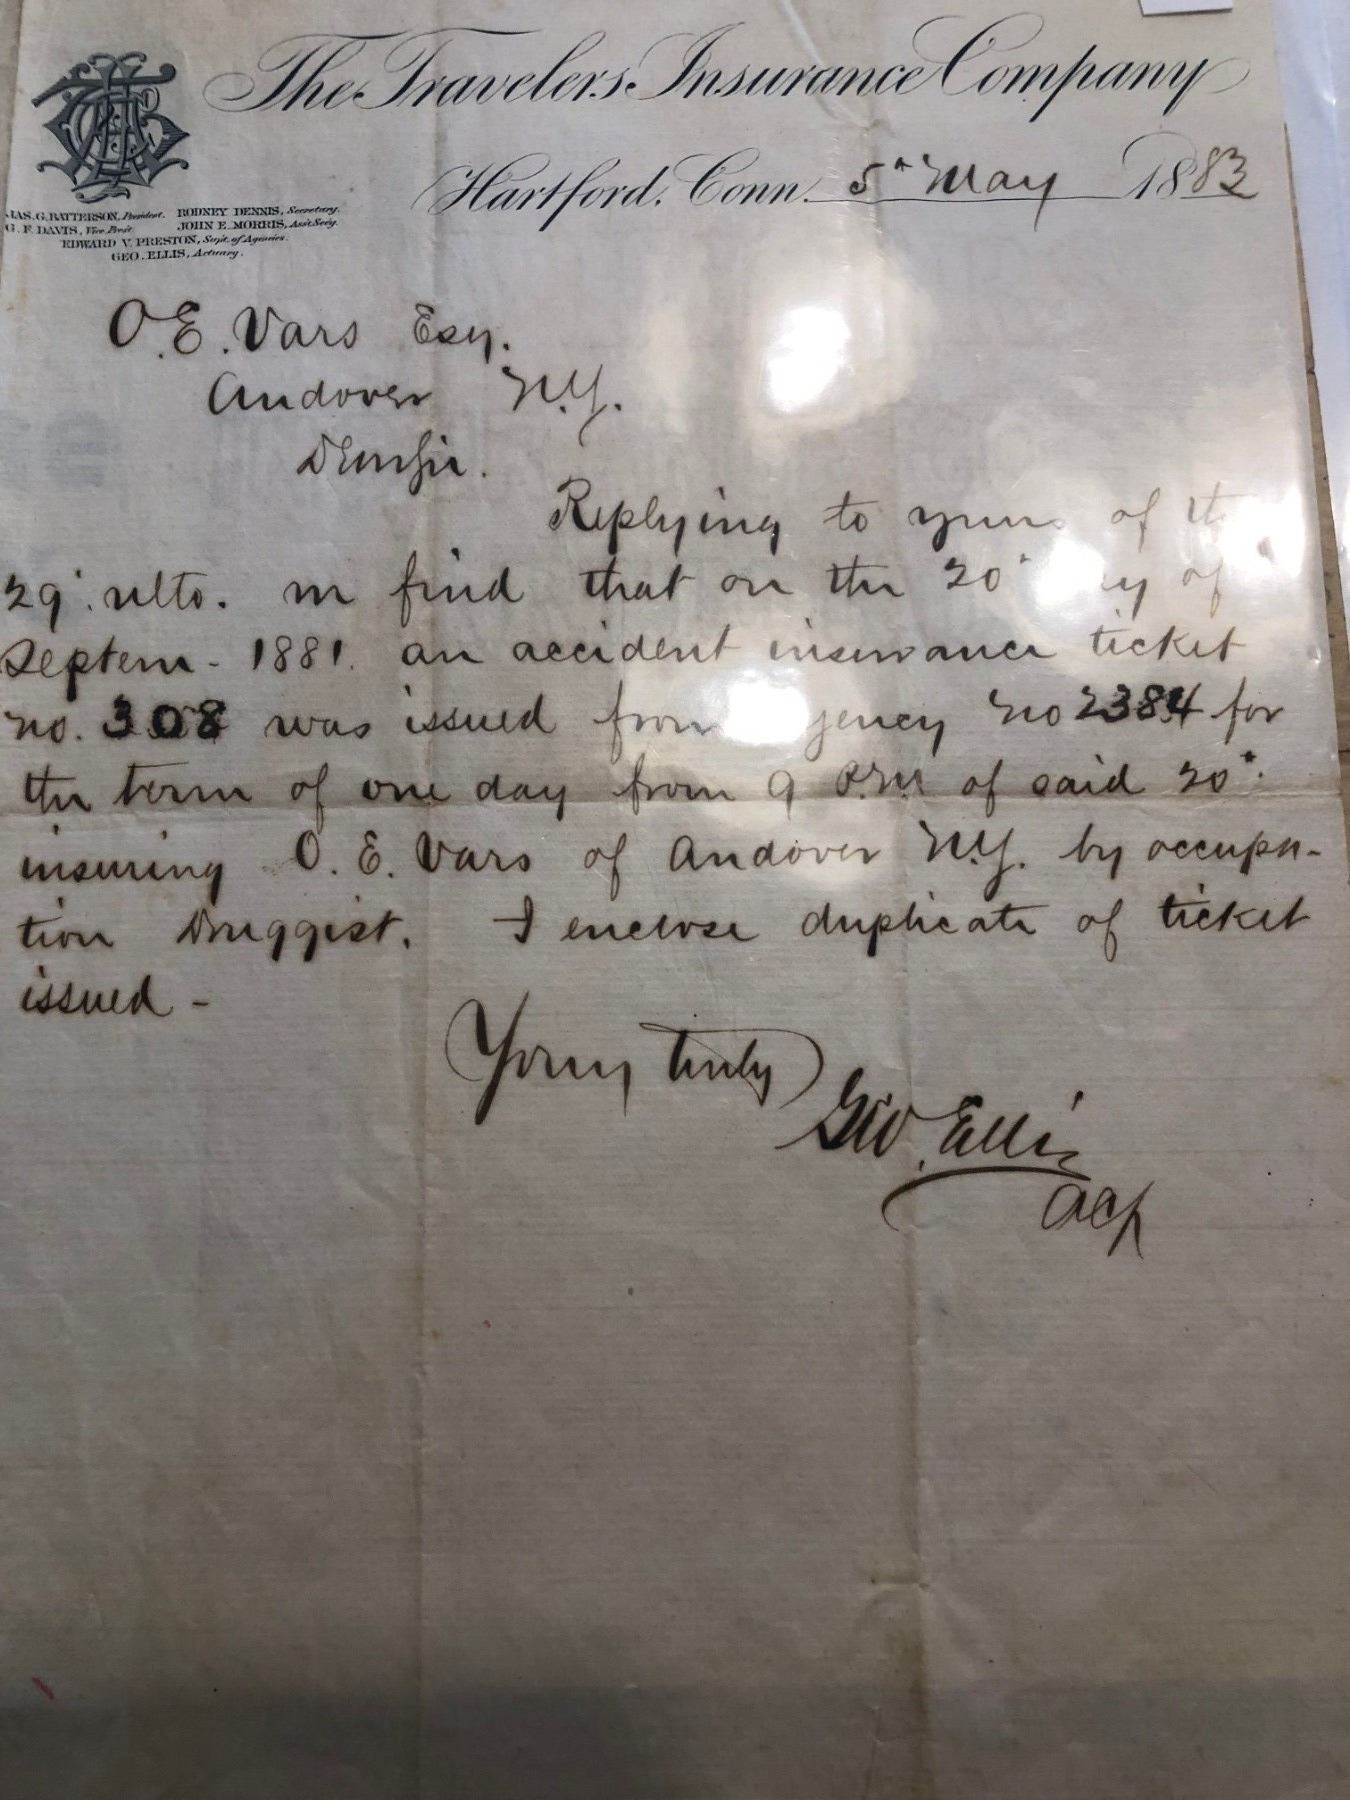 The Travelers Insurance Company
Hartford, Conn. 5" May 1883
JAS. G. BATTERSON, President. RODNEY DENNIS, Secretary.
G. F. DAVIS, Vice Prest. JOHN E. MORRIS, Ass't Sec'y.
EDWARD V. PRESTON, Sup't. of Agencies.
GEO. ELLIS, Actuary.
O. E. Vars Esq.
Andover N.Y.
Dear Sir.
Replying to yours of the
29". ulto. we find that on the 20" of
Septem - 1881. an accident insurance ticket
No. 308 was issued from gency No 2384 for
the term of one day from 9 P.M of said 20".
insuring O. E. Vars of Andover N.Y. by occupa-
tion Druggist. I enclose duplicate of ticket
issued -
Yours truly
Geo. Ellis